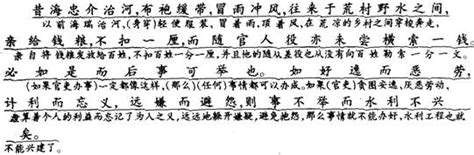 昔海忠介治河,布袍缓带,冒雨冲风,往来于荒村野水之间,
以前海瑞治河,(身穿)轻便服装,冒着雨,顶着风,在荒凉的乡村之间穿梭奔走,
亲给钱粮,不扣一厘,而随官人役亦未尝横索一钱。
亲自将钱粮发放给百姓,不扣百姓一分一厘,并且他的随从差役也从没有向百姓勒索一分一文。
必如是而后事可举也。如好逸而恶劳,
(如果官吏办事)一定都像这样,(那么)(任何)事情都可以办成。如果(官吏)贪图安逸、厌恶劳动,
计利而忘义,远嫌而避怨,则事不举而水利不兴
盘算着个人的利益而忘记了为人之义,远远地躲开嫌疑,避免抱怨,那么事情就不能办好,水利工程也就
矣。
不能兴建了。